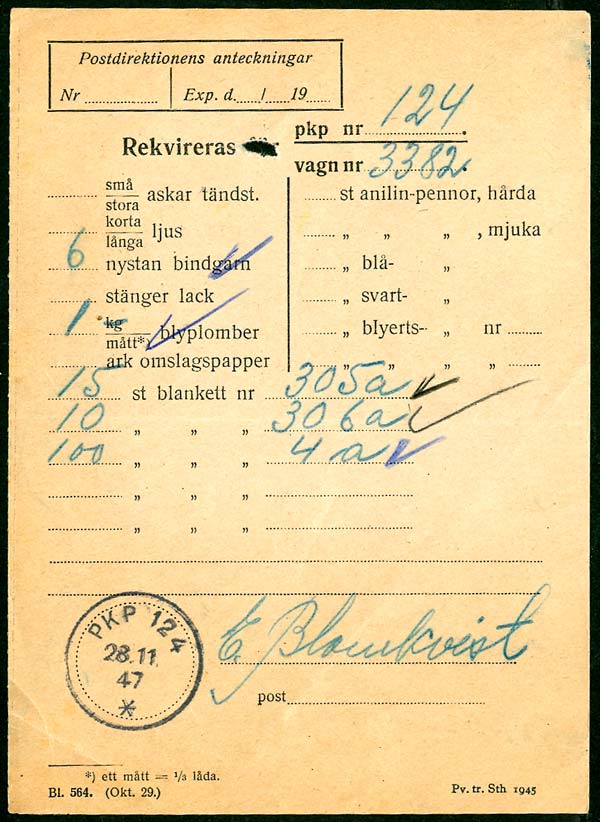 Postdirektionens anteckningar
Nr ............ Exp. d. ...../.....19.....
pkp nr 124.
Rekvireras
vagn nr 3382.
små
stora askar tändst.
korta
långa ljus
6 nystan bindgarn
stänger lack
1 kg
mått*) blyplomber
ark omslagspapper
st anilin-pennor, hårda
„ „ „ , mjuka
„ blå- „
„ svart- „
„ blyerts- „ nr ........
„ „ „ „ ........
15 st blankett nr 305a
10 „ „ „ 306a
100 „ „ „ 4a
„ „ „
„ „ „
PKP 124
28.11
47
*
E. Blomkvist
post
*) ett mått = 1/3 låda.
Bl. 564. (Okt. 29.)
Pv. tr. Sth 1945